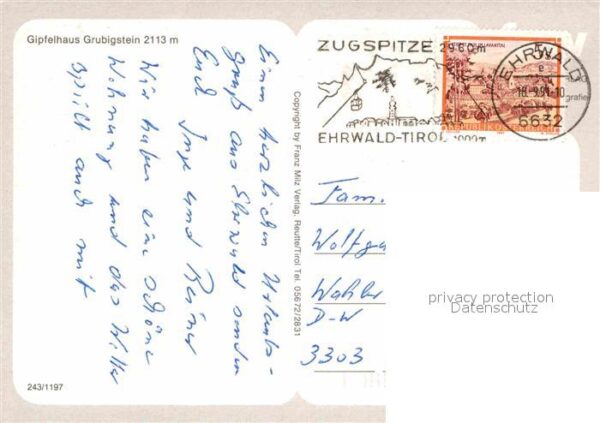 Gipfelhaus Grubigstein 2113 m
Einen herzlichen Urlaubs-
gruß aus Ehrwald senden
Euch Inge und Reiner
Wir haben eine schöne
Wohnung und das Wetter
spielt auch mit
243/1197
Copyright by Franz Milz Verlag, Reutte/Tirol Tel. 05672/2831
ZUGSPITZE 2960m
EHRWALD-TIROL 1000m
EHRWALD
18.-9.91-10
6632
REPUBLIK
Fam.
Wolfga
Wahler
D-W
3303
privacy protection
Datenschutz